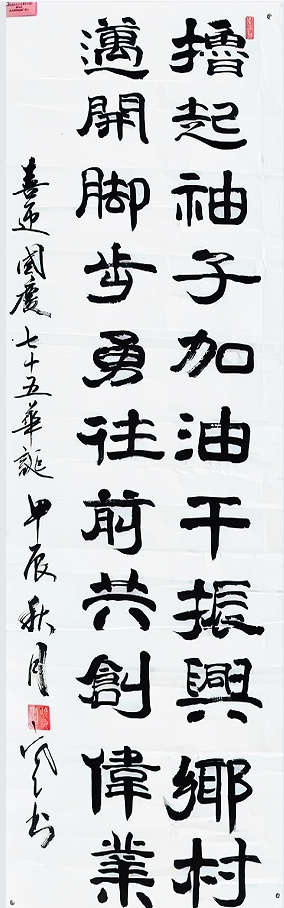 擼起袖子加油干振興鄉村
邁開脚步勇往前共創偉業
喜迎國慶七十五華誕甲辰秋月